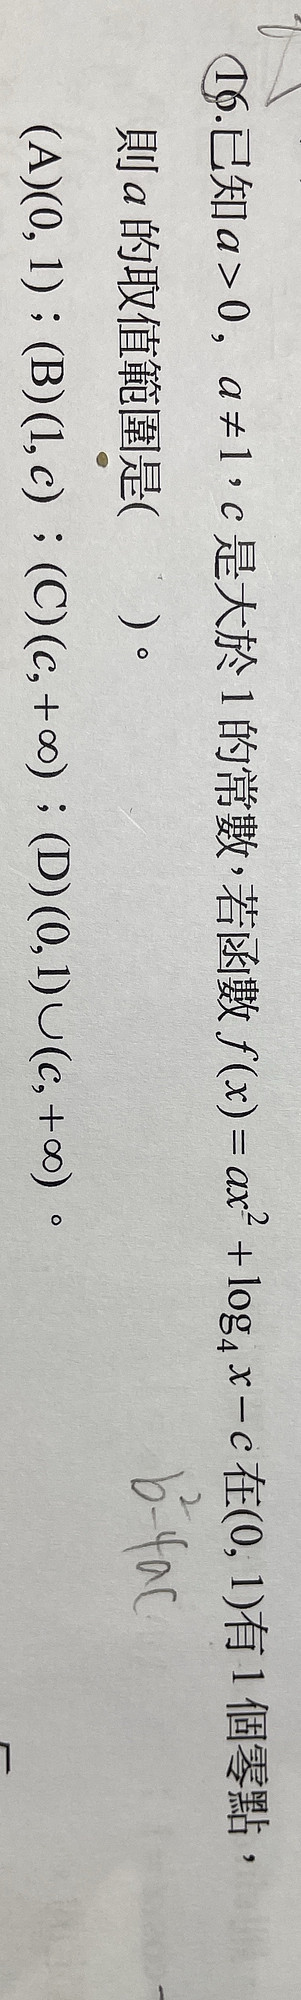 16.已知a>0，a≠1，c是大於1的常數，若函數f(x)=ax²+log₄x−c在(0,1)有1個零點，
則a的取值範圍是(　　)。
(A)(0,1)；(B)(1,c)；(C)(c,+∞)；(D)(0,1)∪(c,+∞)。
b²-4ac